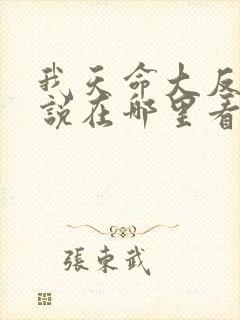 我天命大反
說在哪里看
張東武